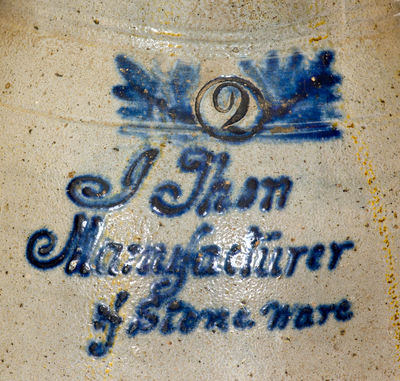 2
I Thon
Manufactürer
of Stone Ware